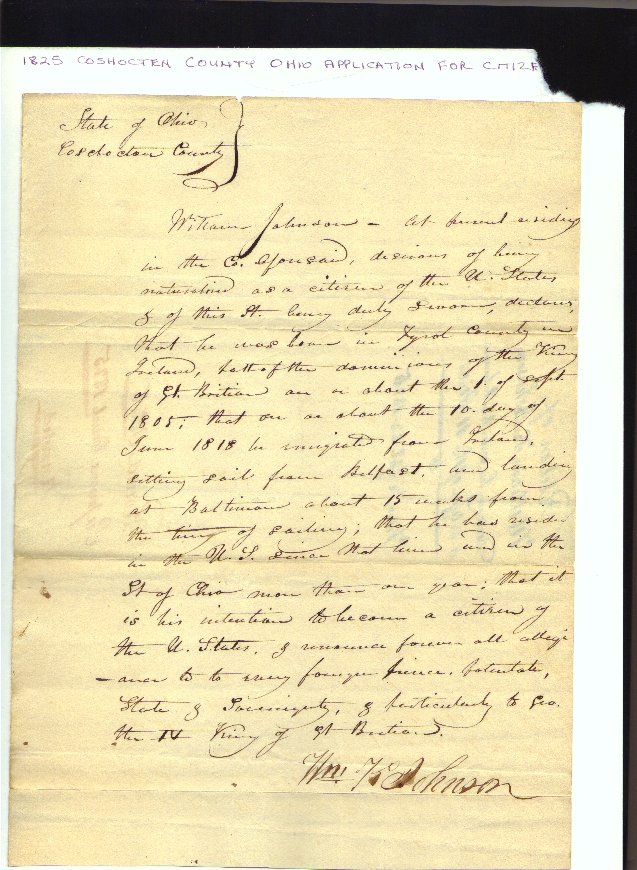 1825 COSHOCTEN COUNTY OHIO APPLICATION FOR CITIZE
State of Ohio
Coschocton County
William Johnson – At present residing
in the Co. aforesaid, desirous of being
naturalised as a citizen of the U. States
& of this St. being duly sworn, declares,
that he was born in Tyrol County in
Ireland, both of the dominions of the King
of Gt. Britian on or about the 1. of Sept.
1805; that on or about the 10. day of
June 1818 he emigrated from Ireland,
setting sail from Belfast, and landing
at Baltimore about 15 weeks from
the time of sailing; that he has resided
in the U. S. since that time and in the
St of Ohio more than one year; that it
is his intention to become a citizen of
the U. States, & renounce forever all allegi
-ance to to every foreign prince, potentate,
State & Sovereignty, & particularly to Geo.
the IV King of Gt Britian.
Wm. K Johnson